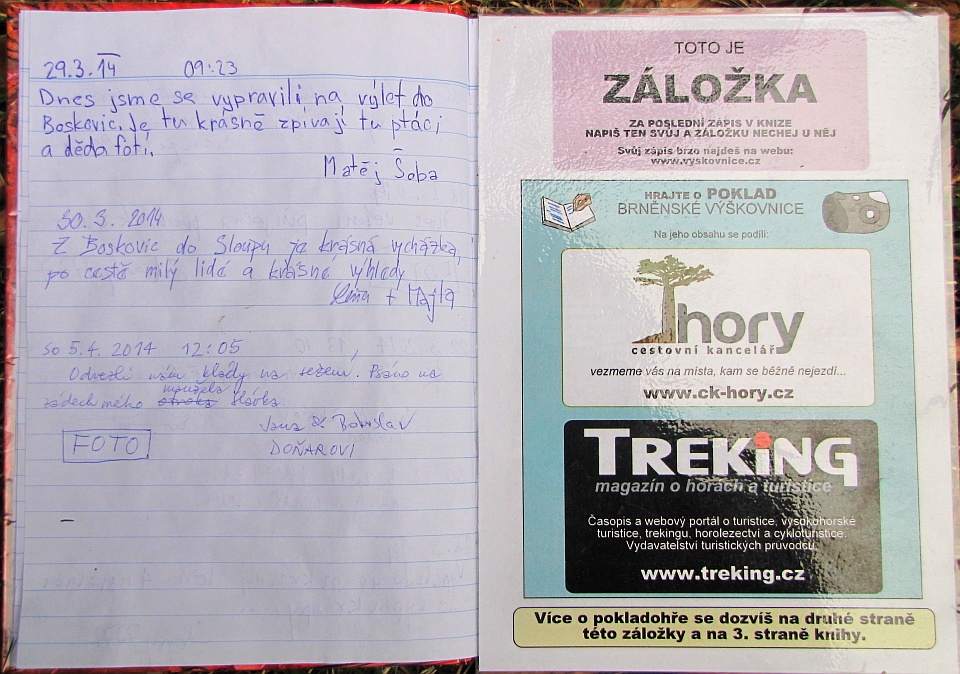 29.3.14 09:23
Dnes jsme se vypravili na výlet do
Boskovic. Je tu krásně zpívají tu ptáci
a děda fotí.
Matěj Šoba
30.3. 2014
Z Boskovic do Sloupu je krásná vycházka,
po cestě milý lidé a krásné výhledy
+ Majka
So 5.4. 2014 12:05
Odvezli nám klády na sezení. Psáno na
manžela
zádech mého Slávka.
Jana & Bohuslav
DOŇAROVI
FOTO
TOTO JE
ZÁLOŽKA
ZA POSLEDNÍ ZÁPIS V KNIZE
NAPIŠ TEN SVŮJ A ZÁLOŽKU NECHEJ U NĚJ
Svůj zápis brzo najdeš na webu:
www.vyskovnice.cz
HRAJTE O POKLAD
BRNĚNSKÉ VÝŠKOVNICE
Na jeho obsahu se podílí:
hory
cestovní kancelář
vezmeme vás na místa, kam se běžně nejezdí...
www.ck-hory.cz
TREKiNG
magazín o horách a turistice
Časopis a webový portál o turistice, vysokohorské
turistice, trekingu, horolezectví a cykloturistice.
Vydavatelství turistických průvodců.
www.treking.cz
Více o pokladohře se dozvíš na druhé straně
této záložky a na 3. straně knihy.